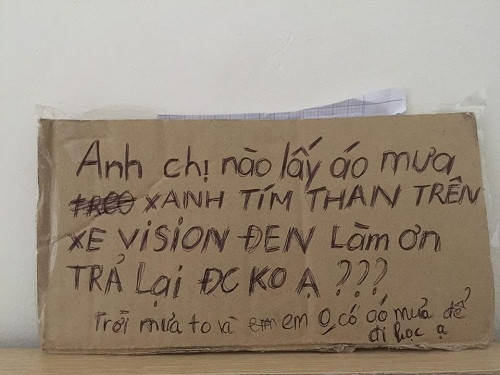 Anh chị nào lấy áo mưa
XANH TÍM THAN TRÊN
XE VISION ĐEN Làm ơn
TRẢ Lại ĐC KO Ạ ???
Trời mưa to và em em O có áo mưa để
đi học ạ